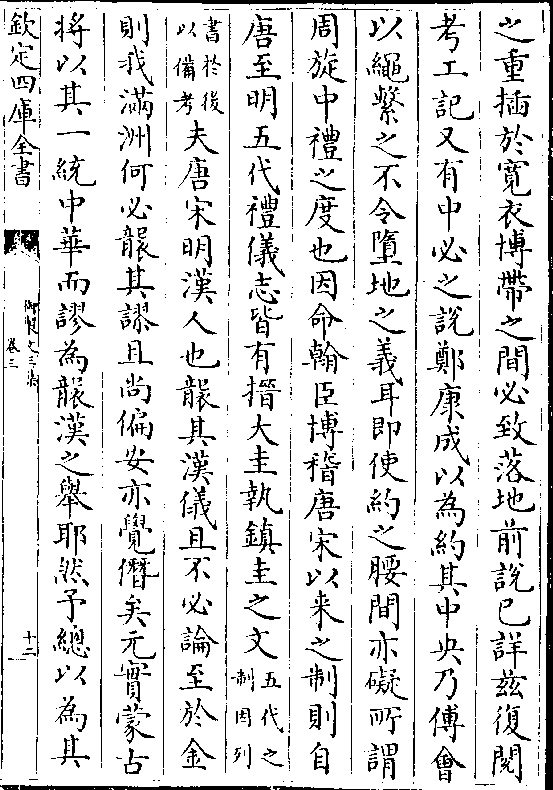 之重插於寛衣博帶之間必致落地前說已詳兹復閱
考工記又有中必之說鄭康成以為約其中央乃傅會
以繩繫之不令墮地之義耳即使約之腰間亦礙所謂
周旋中禮之度也因命翰臣博稽唐宋以来之制則自
唐至明五代禮儀志皆有搢大圭執鎮圭之文五代之制因列
書於後以備考夫唐宋明漢人也襲其漢儀且不必論至於金
則我滿洲何必襲其謬且尚偏安亦覺僭矣元實蒙古
将以其一統中華而謬為襲漢之舉耶然予總以為其
欽定四庫全書
御製文三集
卷三
十二